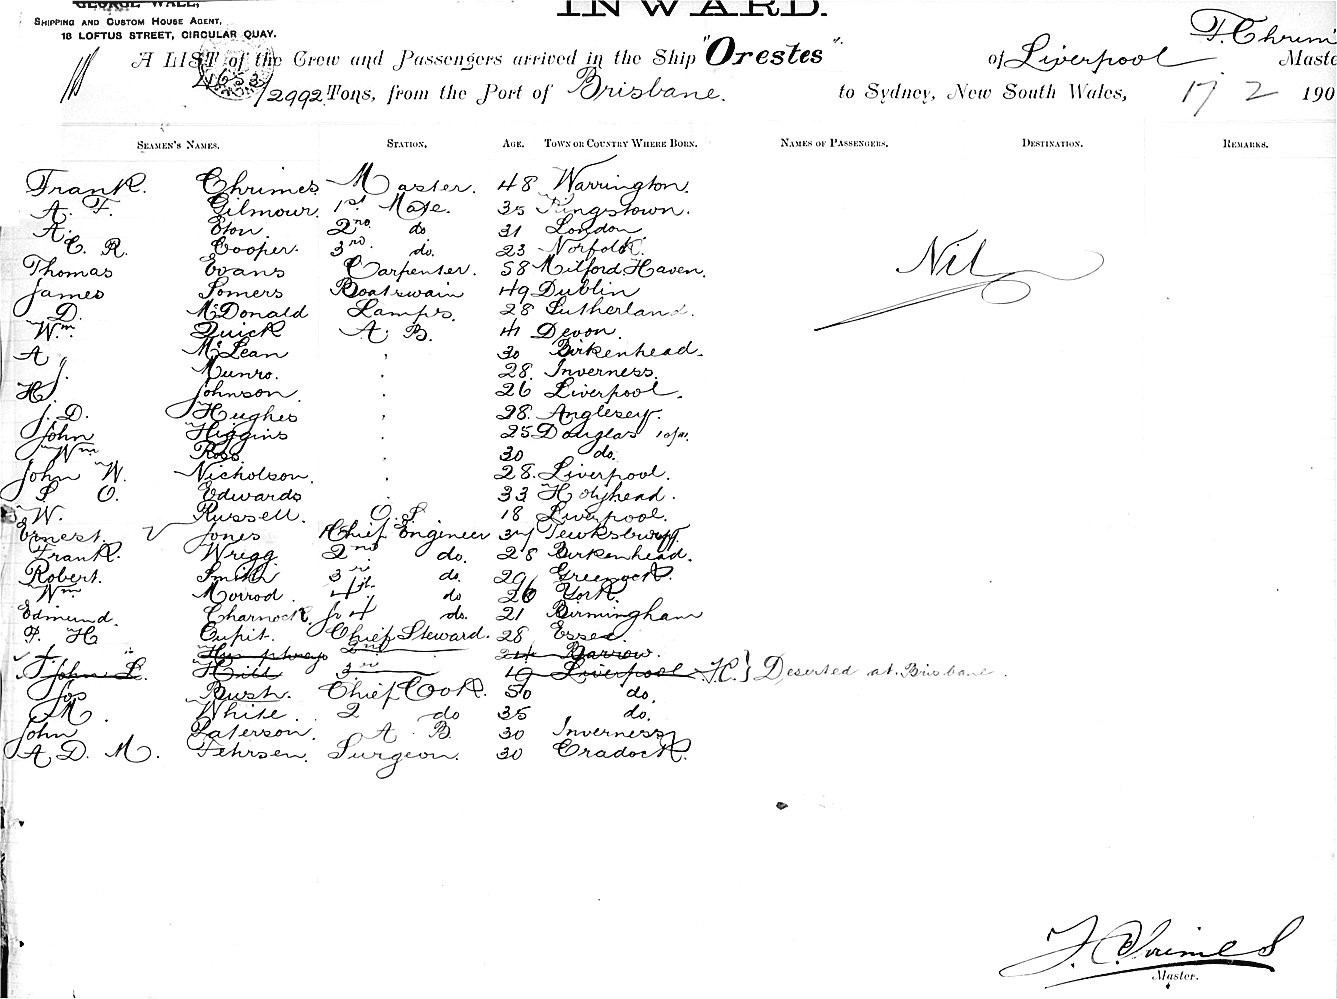 GEORGE WALL,
SHIPPING AND CUSTOM HOUSE AGENT,
18 LOFTUS STREET, CIRCULAR QUAY.
INWARD.
F. Chrim
A LIST of the Crew and Passengers arrived in the Ship "Orestes" of Liverpool Maste
2992 Tons, from the Port of Brisbane. to Sydney, New South Wales, 17 2 190
SEAMEN'S NAMES. STATION. AGE. TOWN OR COUNTRY WHERE BORN. NAMES OF PASSENGERS. DESTINATION. REMARKS.
Frank. Chrimes Master. 48 Warrington.
A. F. Gilmour. 1st Mate. 35 Kingstown.
A. Eton 2nd do 31 London
C. R. Cooper. 3rd. do. 23 Norfolk.
Nil
Thomas Evans Carpenter. 58 Milford Haven.
James Somers Boatswain 49 Dublin
D. McDonald Lamps. 28 Sutherland.
Wm. Quick A. B. 41 Devon.
A McLean 30 Birkenhead.
J. Munro. 28. Inverness.
H. Johnson. 26 Liverpool.
J. D. Hughes 28. Anglesey.
John Higgins 25. Douglas IofM.
Wm Ross 30 do.
John W. Nicholson. 28. Liverpool.
O. Edwards 33 Holyhead.
W. Russell. O. S 18 Liverpool.
Ernest. Jones Chief Engineer 37 Tewksbury
Frank. Wrigg 2nd do. 28 Birkenhead.
Robert. Smith 3rd do. 29 Greenock.
Wm Morrod. 4th. do 26 York.
Edmund. Charnock. Jr 4 do. 21 Birmingham
P. H Cupit. Chief Steward. 28 Essex.
Humphreys 2nd 24 Barrow.
John L. Hill 3rd 19 Liverpool H.} Deserted at Brisbane.
Jos Rush. Chief Cook. 50 do.
M. White. 2 do 35 do.
John Paterson. A. B. 30 Inverness
A. D. M. Fehrsen. Surgeon. 30 Cradock.
F. Chrimes
Master.